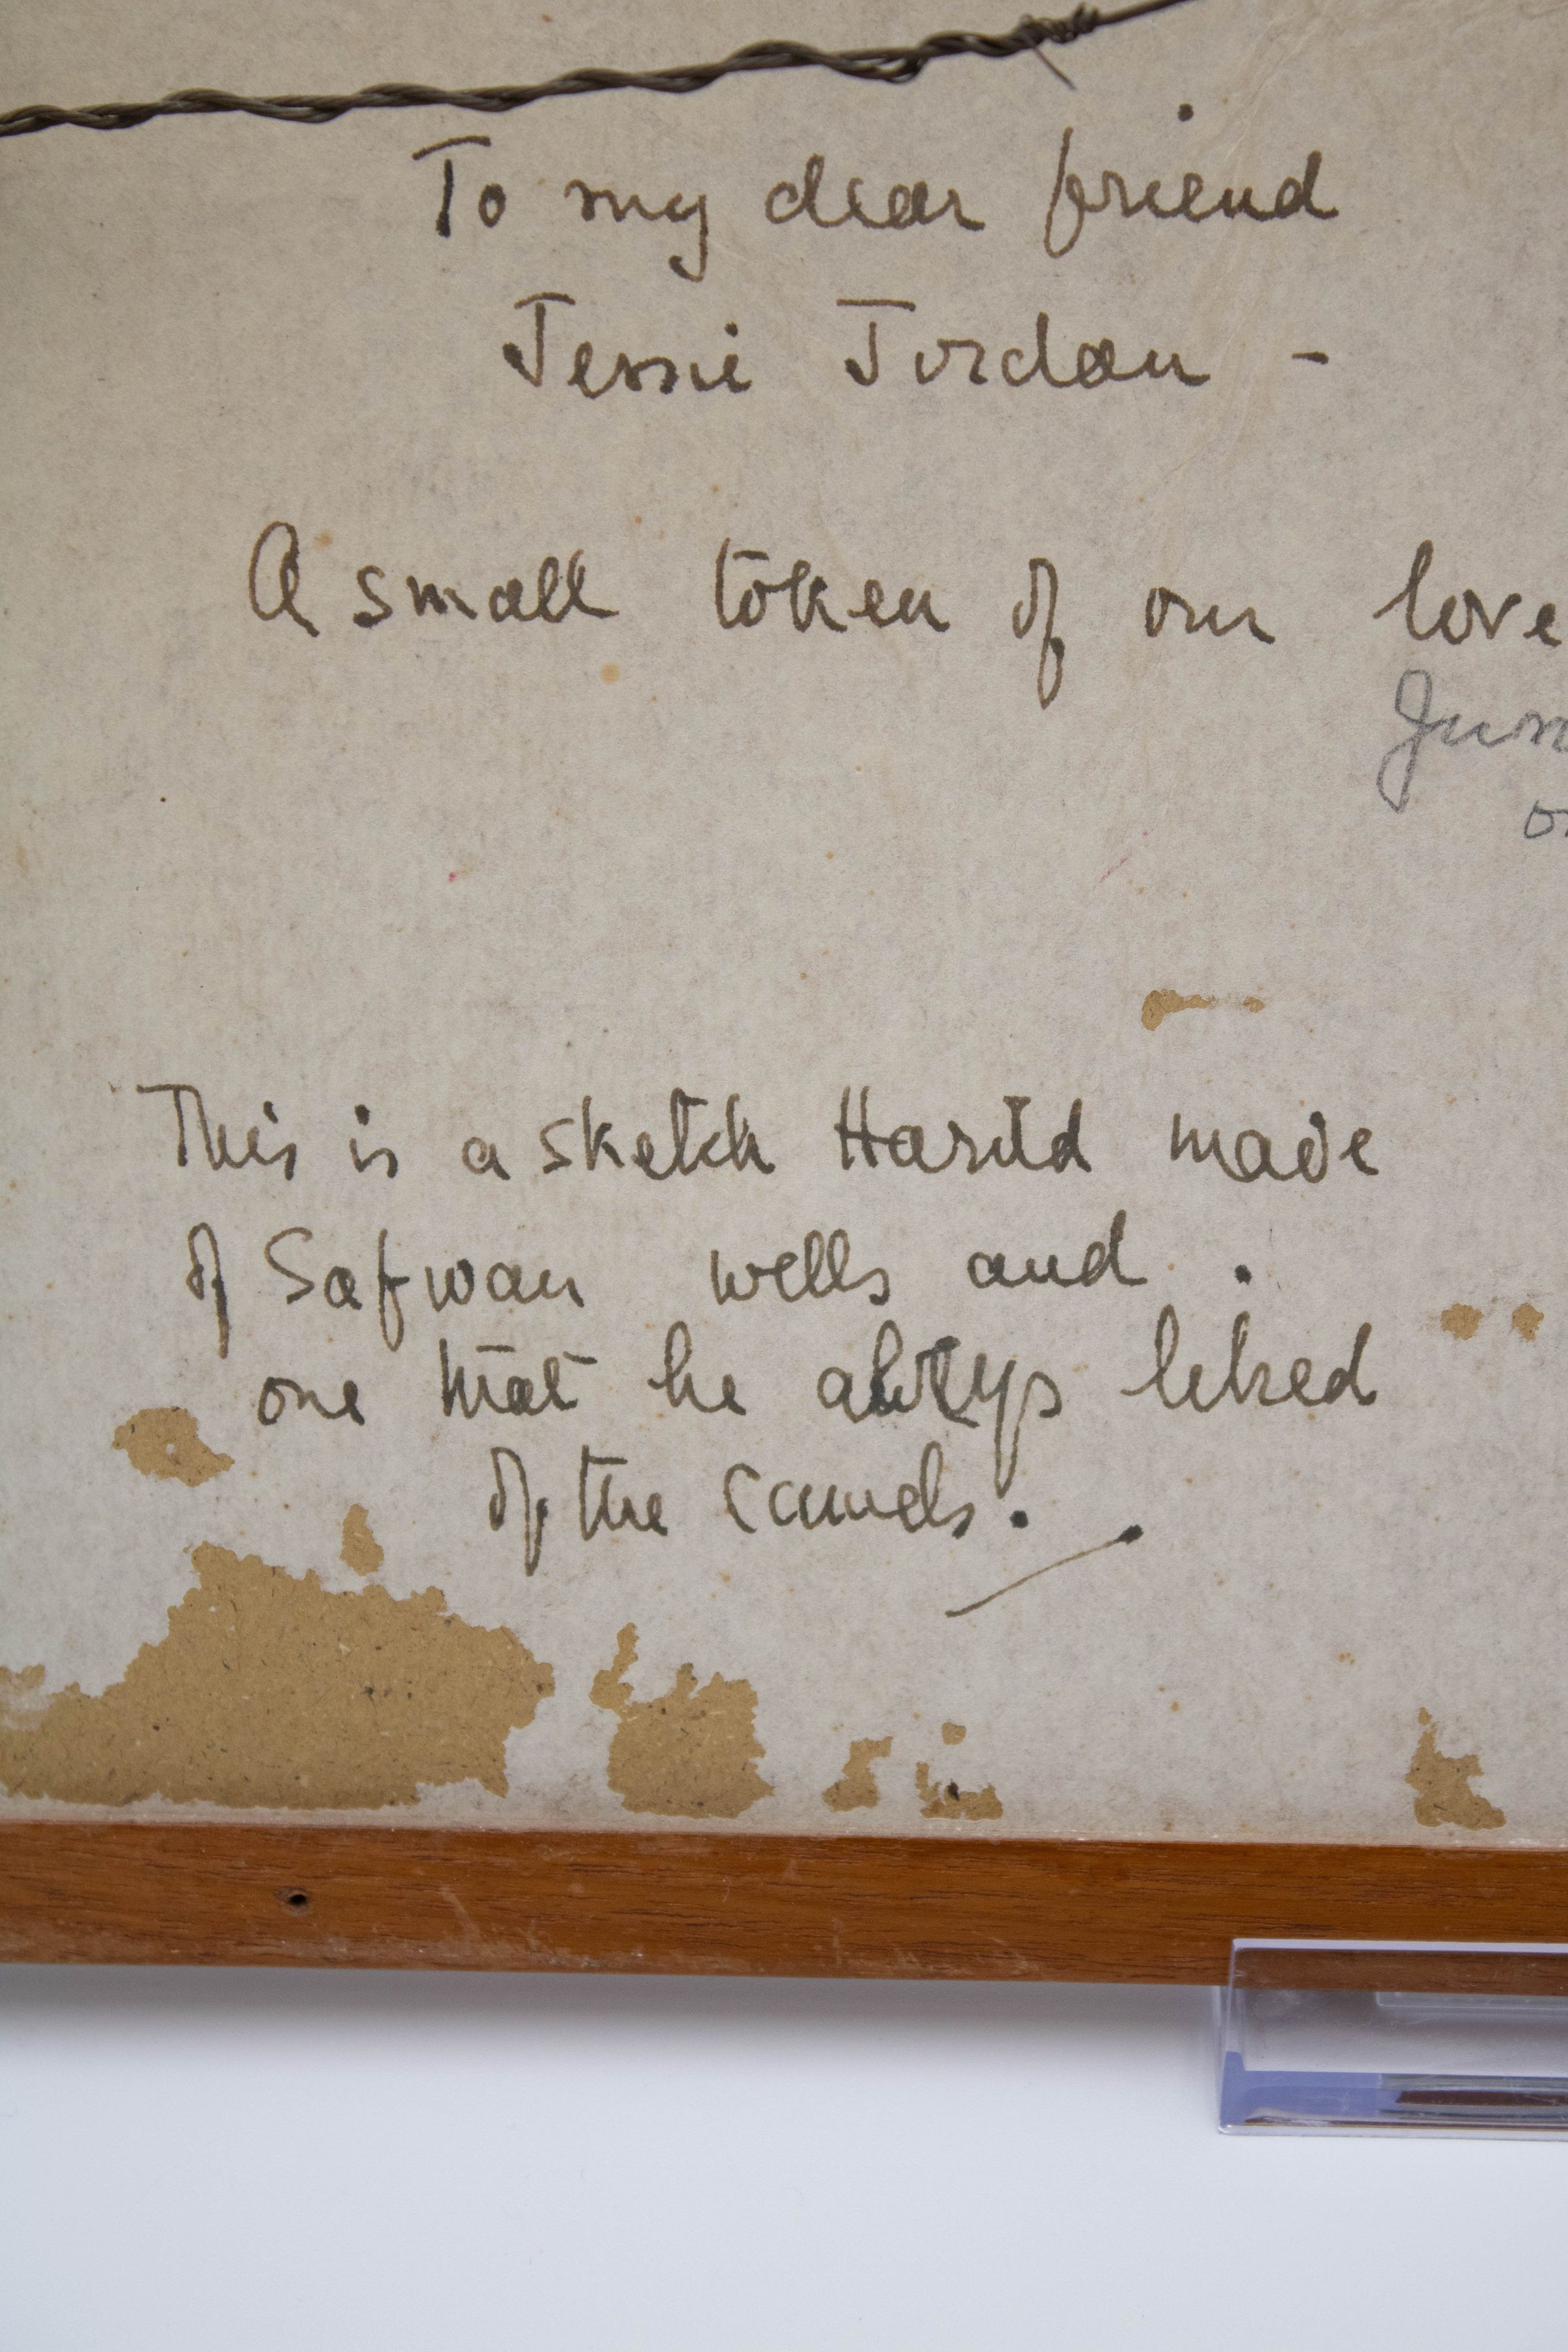 To my dear friend
Jessie Jordan -
A small token of our love
This is a sketch Harold made
of Safwan wells and
one that he always liked
of the camels.